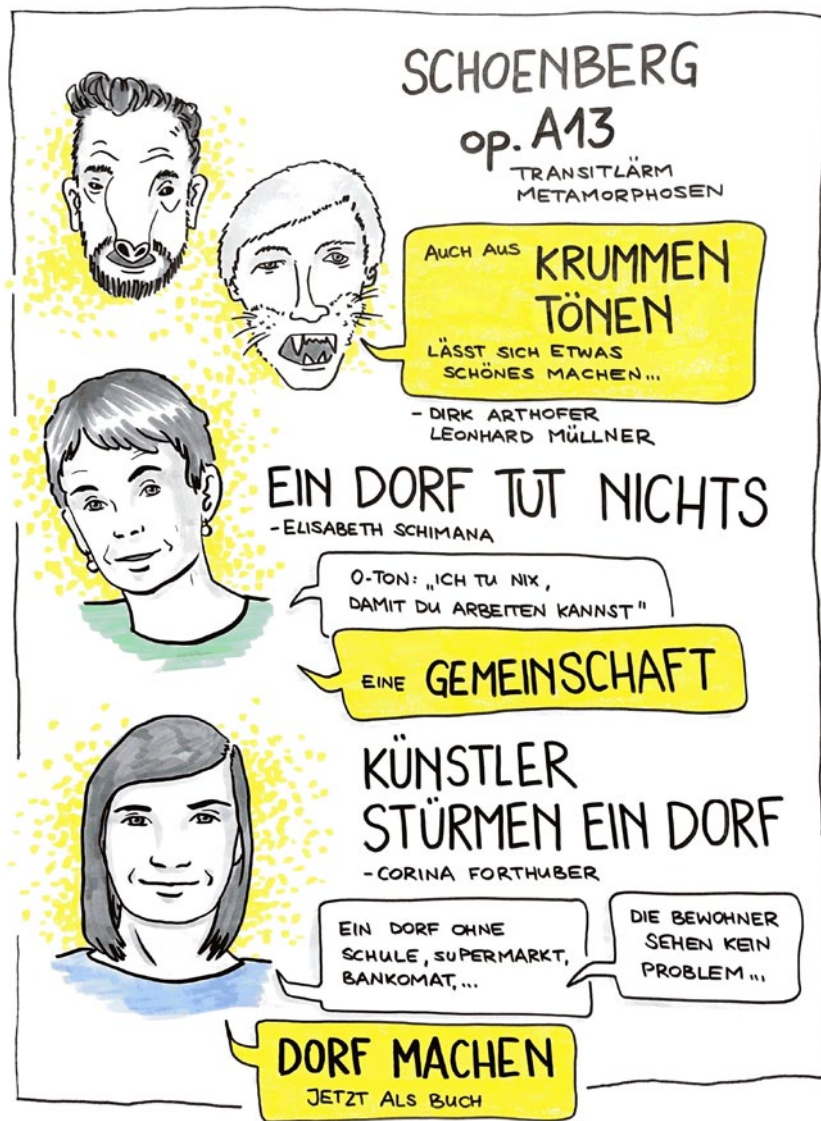 SCHOENBERG
op. A13
TRANSITLÄRM
METAMORPHOSEN
AUCH AUS KRUMMEN
TÖNEN
LÄSST SICH ETWAS
SCHÖNES MACHEN...
- DIRK ARTHOFER
LEONHARD MÜLLNER
EIN DORF TUT NICHTS
- ELISABETH SCHIMANA
O-TON: „ICH TU NIX,
DAMIT DU ARBEITEN KANNST"
EINE GEMEINSCHAFT
KÜNSTLER
STÜRMEN EIN DORF
- CORINA FORTHUBER
EIN DORF OHNE
SCHULE, SUPERMARKT,
BANKOMAT,...
DIE BEWOHNER
SEHEN KEIN
PROBLEM...
DORF MACHEN
JETZT ALS BUCH